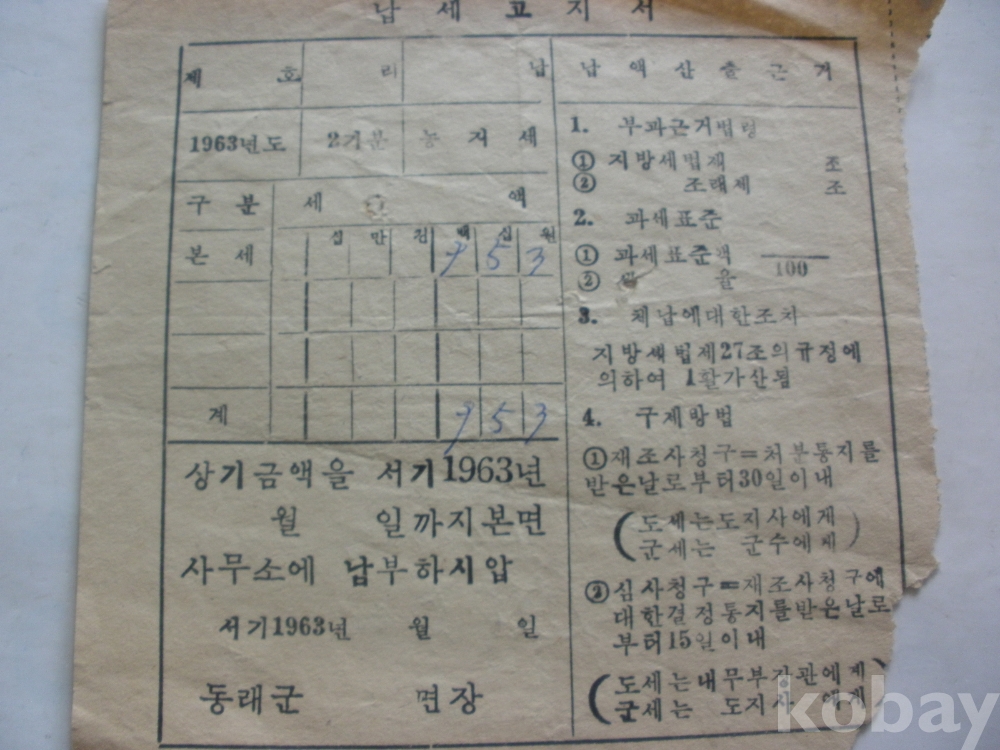 납세고지서
제 호 리 납
1963년도 2기분 농지세
구분 세 액
십 만 천 백 십 원
본세 953
계 953
상기금액을 서기1963년
월 일까지본면
사무소에 납부하시압
서기1963년 월 일
동래군 면장
납액산출근거
1. 부과근거법령
① 지방세법제 조
② 조례제 조
2. 과세표준
① 과세표준액
② 율 100
3. 체납에대한조치
지방세법제27조의규정에
의하여 1할가산됨
4. 구제방법
①재조사청구=처분통지를
받은날로부터30일이내
(도세는도지사에게
군세는 군수에게)
②심사청구=재조사청구에
대한결정통지를받은날로
부터15일이내
(도세는내무부장관에게)
군세는 도지사 에게
kobay